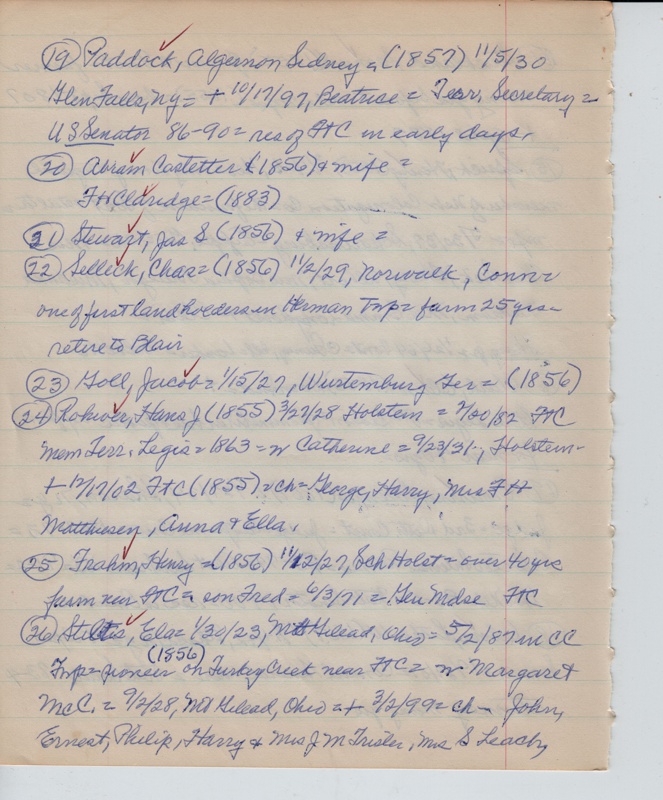 (19) Paddock, Algernon Sidney = (1857) 11/5/30
Glen Falls, NY = + 10/17/97, Beatrice = Terr. Secretary =
US Senator 86-90 = res of FtC in early days.
(20) Abram Castetter (1856) & wife =
FH Claridge = (1883)
21) Stewart, Jas S (1856) & wife =
(22) Sellick, Chas = (1856) 11/2/29, Norwalk, Conn =
one of first landholders in Herman Tnp = farm 25 yrs =
retire to Blair
(23) Goll, Jacob = 1/15/27, Wurtemburg Ger = (1856)
(24) Rohwer, Hans J (1855) 3/27/28 Holstein = /20/82 FtC
Mem Terr. Legis = 1863 = w Catherine = 9/23/31, Holstein =
+ 12/17/02 FtC (1855) = ch = George, Harry, Mrs FH
Matthiesen, Anna & Ella.
(25) Frahm, Henry = (1856) 11/12/27, Sch Holst = over 40 yrs
farm near FtC = son Fred = 6/3/71 = Gen Mdse FtC
(26) Stiltis, Ela = 1/30/23, Mt Gilead, Ohio = 5/2/87 in CC
Tnp = pioneer (1856) on Turkey Creek near FtC = w Margaret
McC. = 9/2/28, Mt Gilead, Ohio = + 3/2/99 = ch - John,
Ernest, Philip, Harry & Mrs J M Trisler, Mrs S Leach,